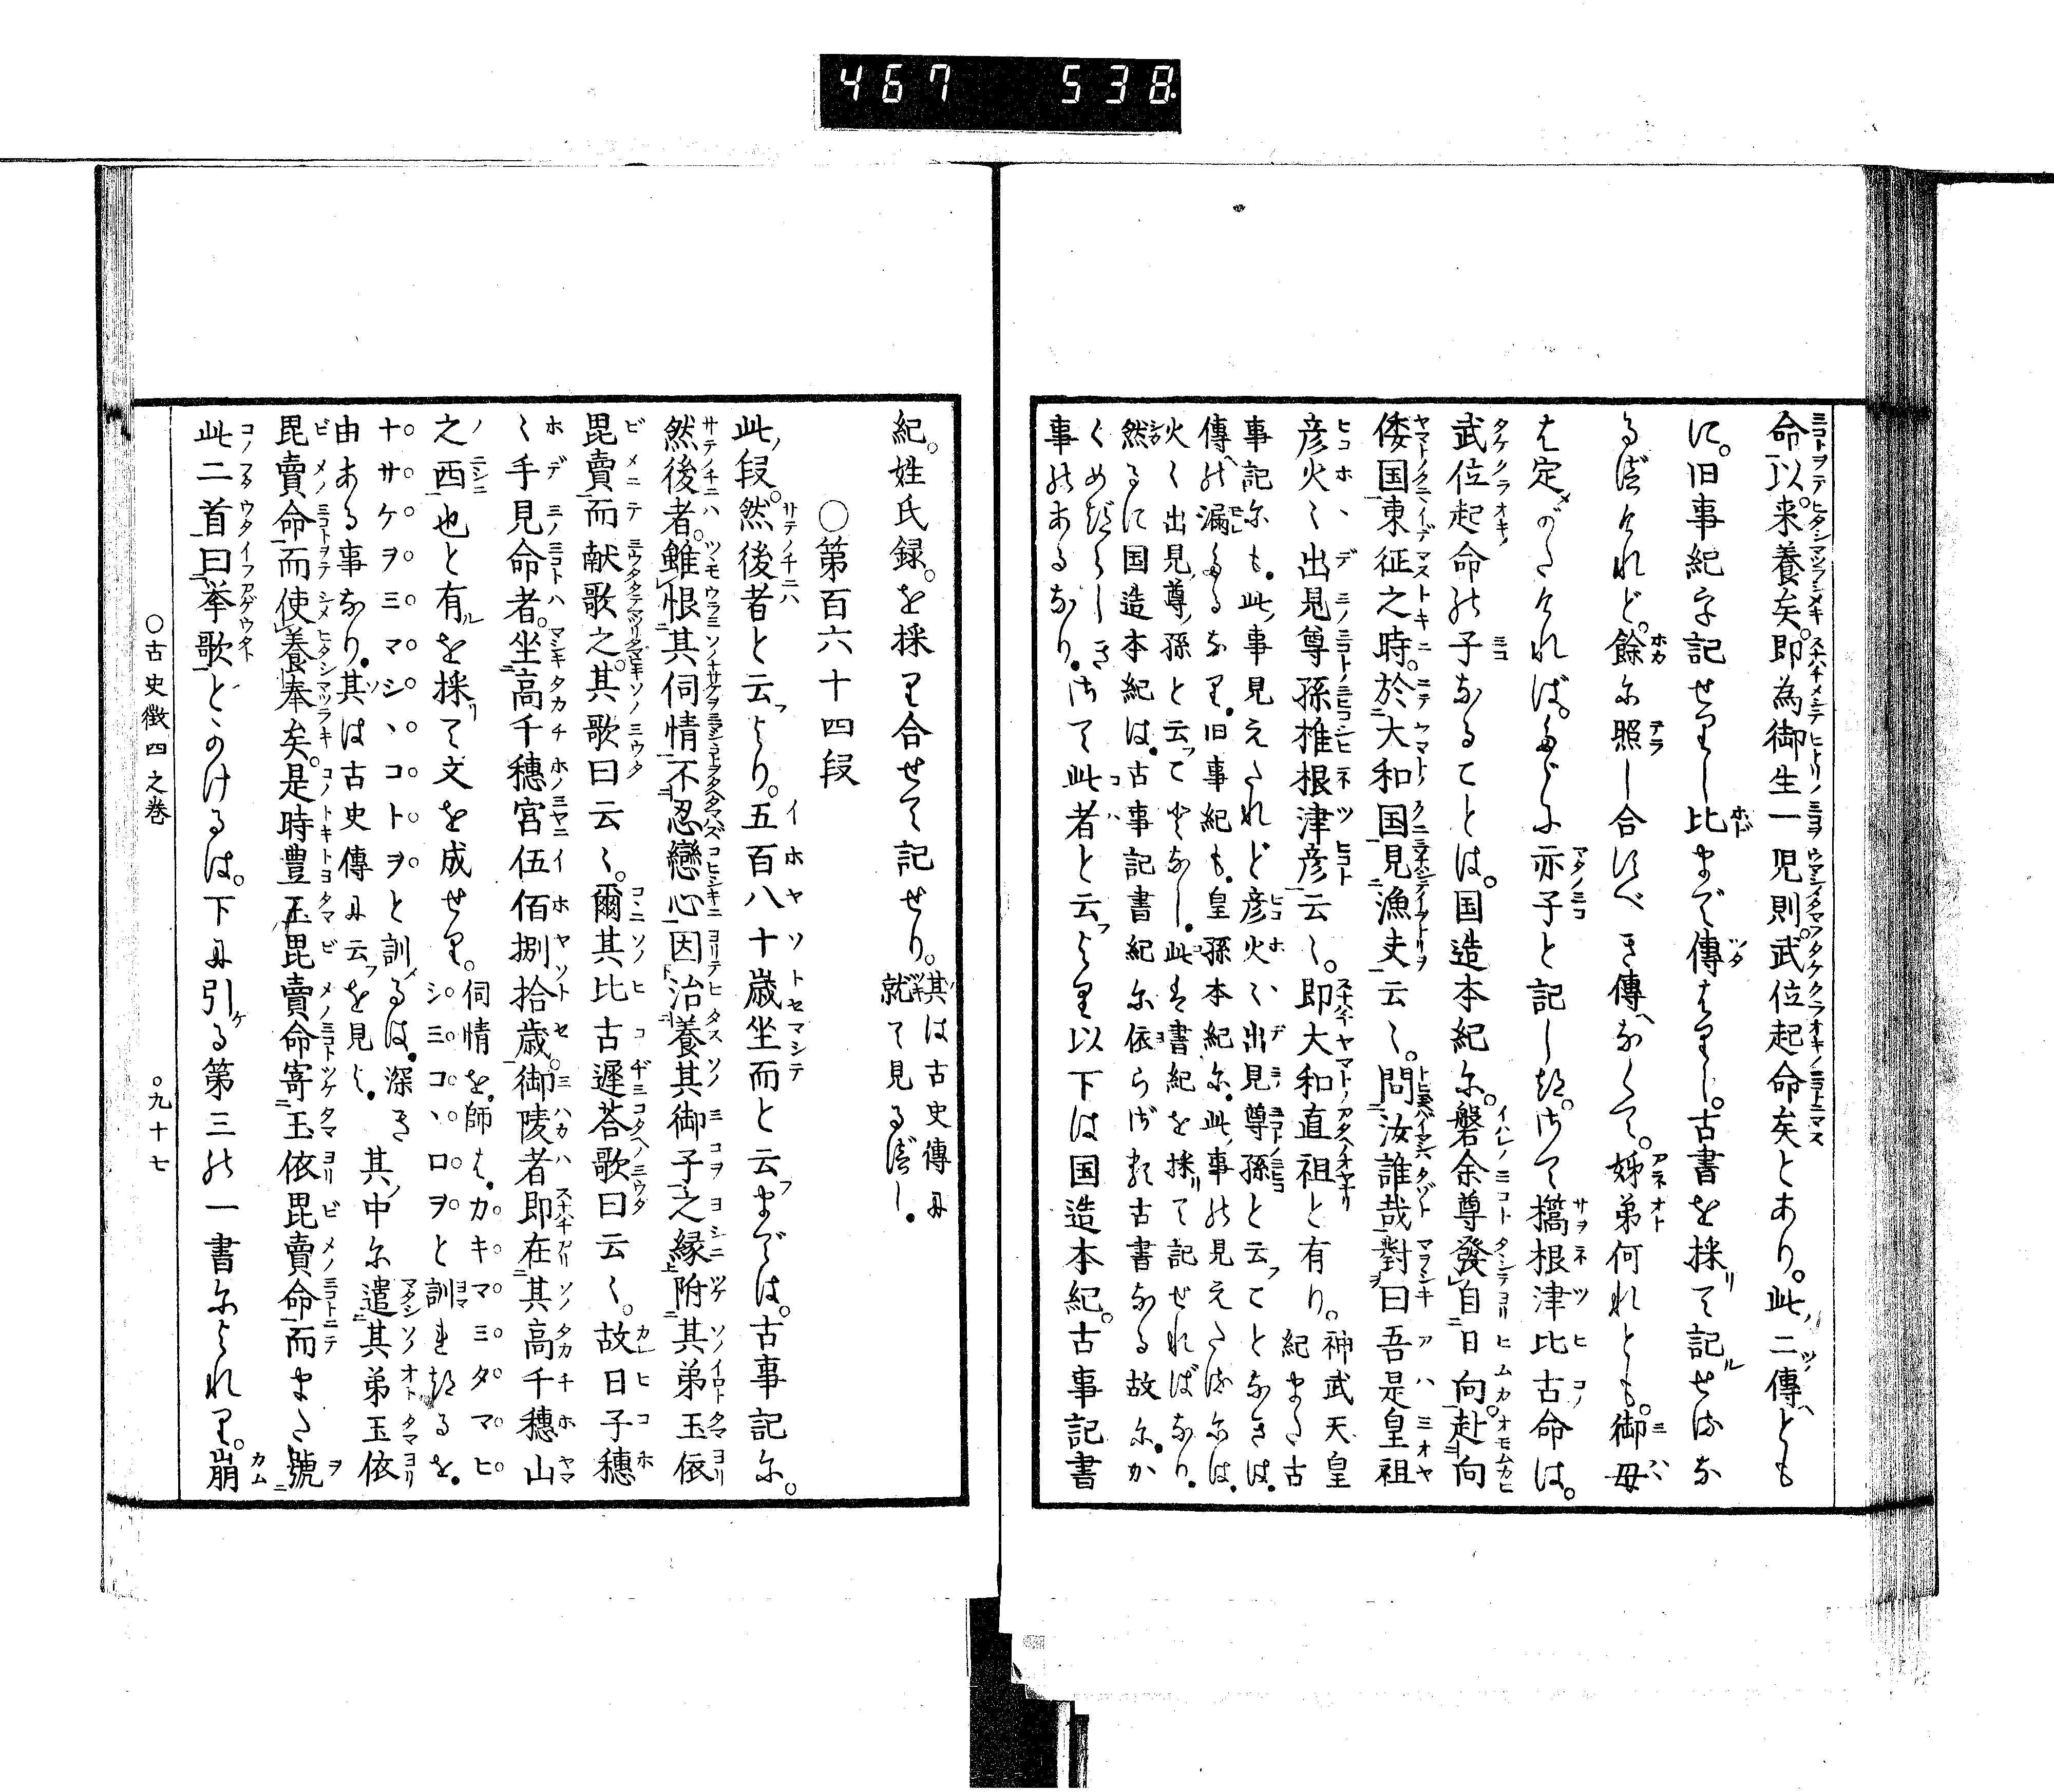 467 538
命以。来養矣。即為御生一児則。武位起命矣とあり。此二傳とも
に。旧事紀字記せりし比まで傳はりし。古書を採て記せるな
るべけれど。餘に照し合すべき傳なくて。姉弟何れとも。御母
は定がたければ。たゞに亦子と記しつ。さて㰏根津比古命は。
武位起命の子なることは。国造本紀に。磐余尊發自日向。赴向
倭国東征之時。於大和国見漁夫云〻。問汝誰哉對曰吾是皇祖
彦火〻出見尊孫椎根津彦云〻。即大和直祖と有り。神武天皇
紀また古
事記にも。此事見えたれど彦火〻出見尊孫と云ことなきは。
傳の漏たるなり。旧事紀も。皇孫本紀に。此事の見えたるには。
火〻出見尊孫と云て無し。此は書紀を採て記せればなり。
然るに国造本紀は。古事記書紀に依らざる古書なる故に。か
くめづらしき
事のあるなり。さて此者と云より以下は国造本紀。古事記書
紀。姓氏録。を採り合せて記せり。其は古史傳に
就て見るべし。
○第百六十四段
此段。然後者と云より。五百八十歳坐而と云までは。古事記に。
然後者。雖恨其伺情不忍戀心因治養其御子之縁附其弟玉依
毘賣而献歌之。其歌曰云〻。爾其比古遅荅歌曰云〻。故日子穂
〻手見命者。坐高千穂宮伍佰捌拾歳。御陵者即在其高千穂山
之西也と有を採て文を成せり。伺情を。師は。カキマミタマヒ
シミコヽロヲと訓れつるを。
ナサケヲミマシヽコトヲと訓るは。深き
由ある事なり。其は古史傳に云を見よ。其中に遣其弟玉依
毘賣命而使養奉矣。是時豊玉毘賣命寄玉依毘賣命而また號
此二首曰挙歌とゝのけるは。下に引る第三の一書によれり。崩
○古史徴四之巻 ○九十七